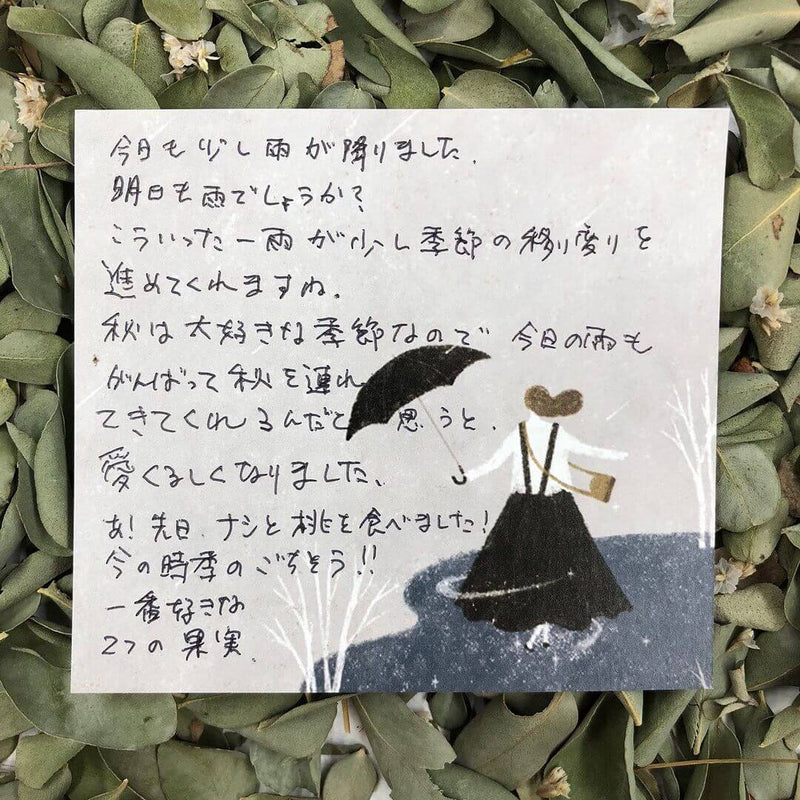 今日も少し雨が降りました.
明日も雨でしょうか?
こういった一雨が少し季節の移り変りを
進めてくれますね.
秋は大好きな季節なので 今日の雨も
がんばって秋を連れ
てきてくれるんだと思うと.
愛くるしくなりました.
あ! 先日. ナシと桃を食べました!
今の時季のごちそう!!
一番好きな
2つの果実.